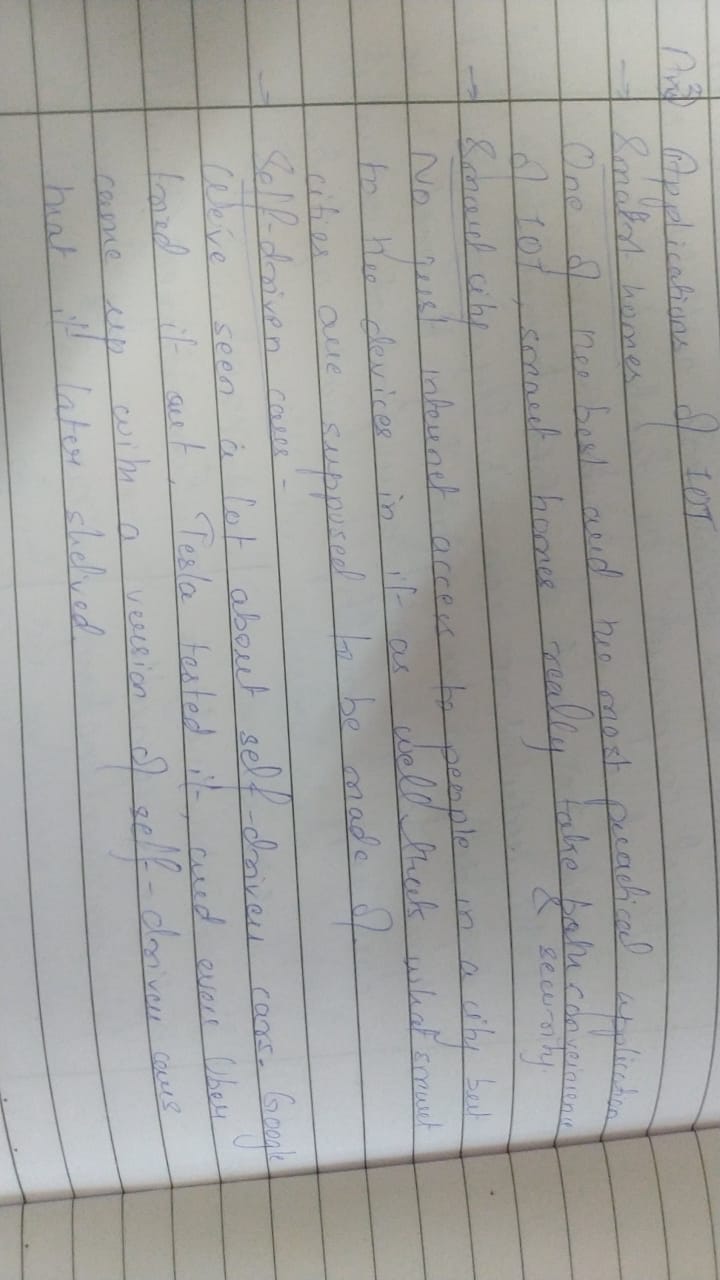 Ans 3) Applications of IOT
→ Smart homes
One of the best and the most practical application
of IOT, smart homes really take both conveinience
& security.
→ Smart city
No just internet access to people in a city but
to the devices in it as well thats what smart
cities are supposed to be made of.
→ Self-driven cars -
We've seen a lot about self-driven cars. Google
tried it out, Tesla tested it, and even Uber
came up with a version of self-driven cars
that it later shelved.